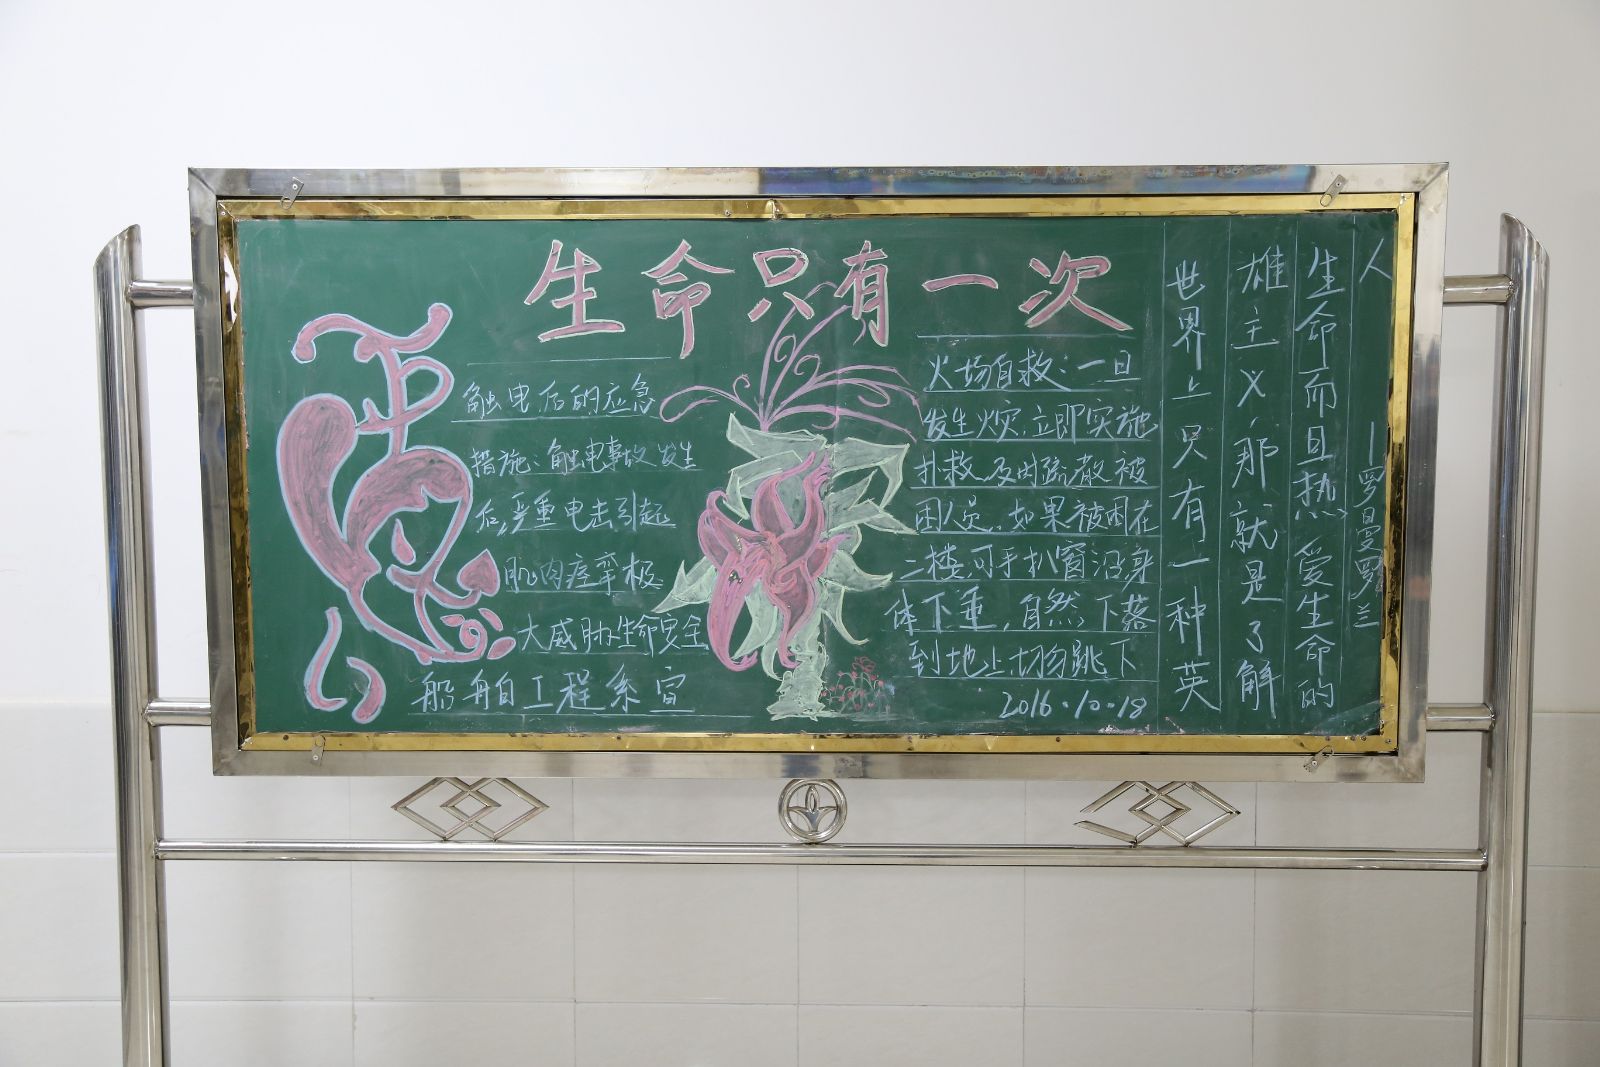 生命只有一次
触电后的应急
措施：触电事故发生
后,严重电击引起
肌肉痉挛极
大威胁生命安全
船舶工程系宣
火场自救：一旦
发生火灾,立即实施
扑救,及时疏散被
困人员,如果被困在
二楼,可手扒窗沿身
体下垂,自然下落
到地上,切勿跳下
2016.10.18
世界上只有一种英
雄主义,那就是了解
生命而且热爱生命的
人 —罗曼罗兰